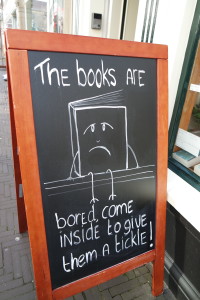 The books are
bored, come
inside to give
them a tickle!